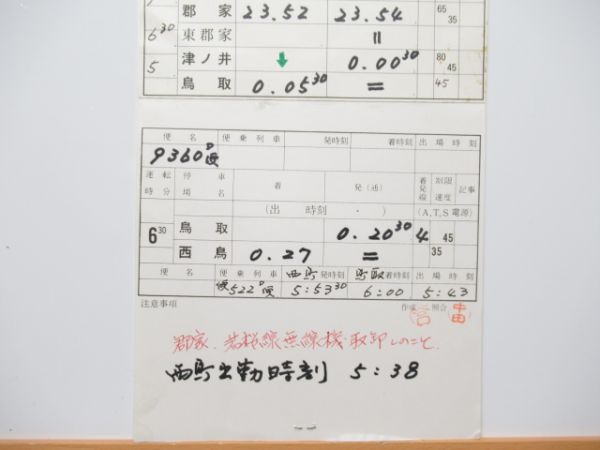 郡家 23.52 23.54 65 35
6 30 東郡家 =
5 津ノ井 ↓ 0.00 30 80 45
鳥取 0.05 30 = 45
便名 便乗列車 発時刻 着時刻 出場時刻
9360D
運転時分 停車場名 着 発(通) 着発線 制限速度 記事
(出 時刻 ・ ) (A,T,S電源)
6 30 鳥取 0.20 30 4 45
西鳥 0.27 = 35
便名 便乗列車 西鳥 発時刻 鳥取 着時刻 出場時刻
便522D 5:53 30 6:00 5:43
注意事項 作成 照合
郡家.若桜線無線機取卸しのこと
西鳥出勤時刻 5:38